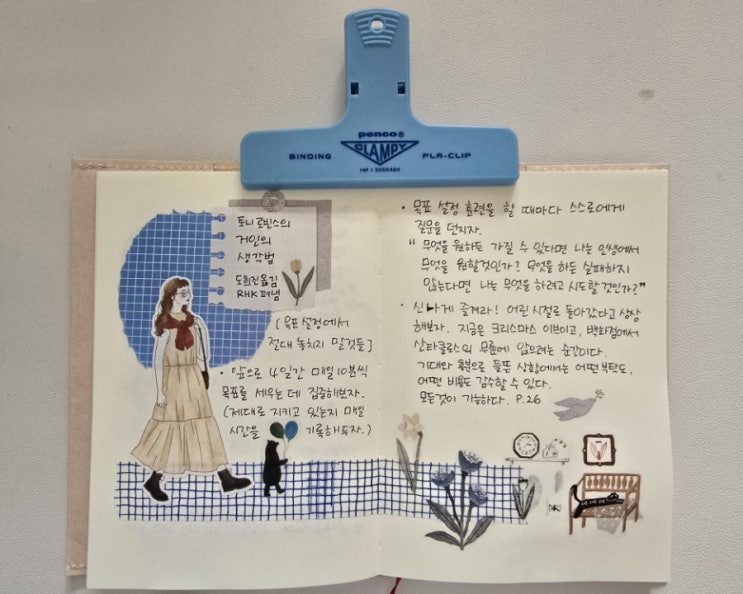 penco®
CLAMPY
BINDING
PLA-CLIP
토니 로빈스의
거인의
생각법
도희진 옮김
RHK 펴냄
[목표 설정에서
절대 놓치지 말것들]
• 앞으로 4일간 매일 10분씩
목표를 세우는 데 집중해보자.
(제대로 지키고 있는지 매일
시간을 기록해두자.)
• 목표 설정 훈련을 할 때마다 스스로에게
질문을 던지자.
“ 무엇을 원하든 가질 수 있다면 나는 인생에서
무엇을 원할것인가? 무엇을 하든 실패하지
않는다면 나는 무엇을 하려고 시도할 것인가?”
• 신나게 즐겨라! 어린 시절로 돌아갔다고 상상
해보자. 지금은 크리스마스 이브이고, 백화점에서
산타클로스의 무릎에 앉으려는 순간이다.
기대와 흥분으로 들뜬 상황에서는 어떤 부탁도,
어떤 비용도 감수할 수 있다.
모든것이 가능하다. P.26